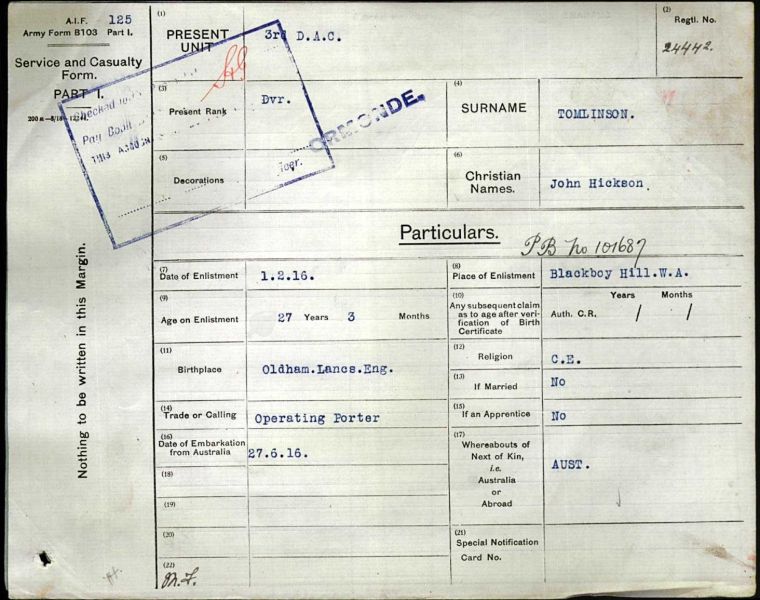 A.I.F. 125
Army Form B103 Part I.
Service and Casualty
Form.
PART I.
Nothing to be written in this Margin.
Checked
Pay Book
(1)
PRESENT
UNIT
3rd D.A.C.
(2)
Regtl. No.
24442.
(3)
Present Rank
Dvr.
ORMONDE.
(4)
SURNAME
TOMLINSON.
(5)
Decorations
(6)
Christian
Names.
John Hickson.
Particulars.
PB No 101687
(7)
Date of Enlistment
1.2.16.
(8)
Place of Enlistment
Blackboy Hill.W.A.
(9)
Age on Enlistment
27 Years 3 Months
(10)
Any subsequent claim
as to age after veri-
fication of Birth
Certificate
Auth. C.R.
Years Months
/ /
(11)
Birthplace
Oldham.Lancs.Eng.
(12)
Religion
C.E.
(13)
If Married
No
(14)
Trade or Calling
Operating Porter
(15)
If an Apprentice
No
(16)
Date of Embarkation
from Australia
27.6.16.
(17)
Whereabouts of
Next of Kin,
i.e.
Australia
or
Abroad
AUST.
(18)
(19)
(20)
(21)
Special Notification
Card No.
(22)